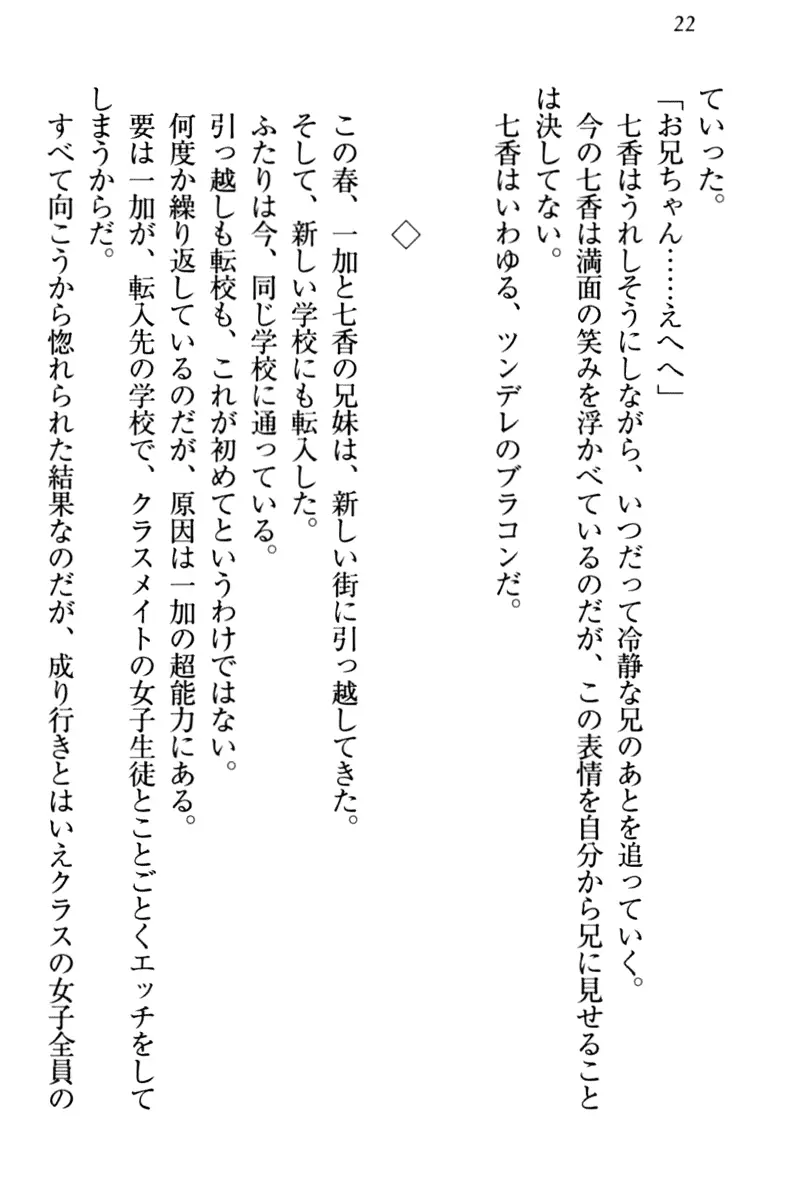 22
ていった。
「お兄ちゃん……えへへ」
七香はうれしそうにしながら、いつだって冷静な兄のあとを追っていく。
今の七香は満面の笑みを浮かべているのだが、この表情を自分から兄に見せること
は決してない。
七香はいわゆる、ツンデレのブラコンだ。
◇
この春、一加と七香の兄妹は、新しい街に引っ越してきた。
そして、新しい学校にも転入した。
ふたりは今、同じ学校に通っている。
引っ越しも転校も、これが初めてというわけではない。
何度か繰り返しているのだが、原因は一加の超能力にある。
要は一加が、転入先の学校で、クラスメイトの女子生徒とことごとくエッチをして
しまうからだ。
すべて向こうから惚れられた結果なのだが、成り行きとはいえクラスの女子全員の